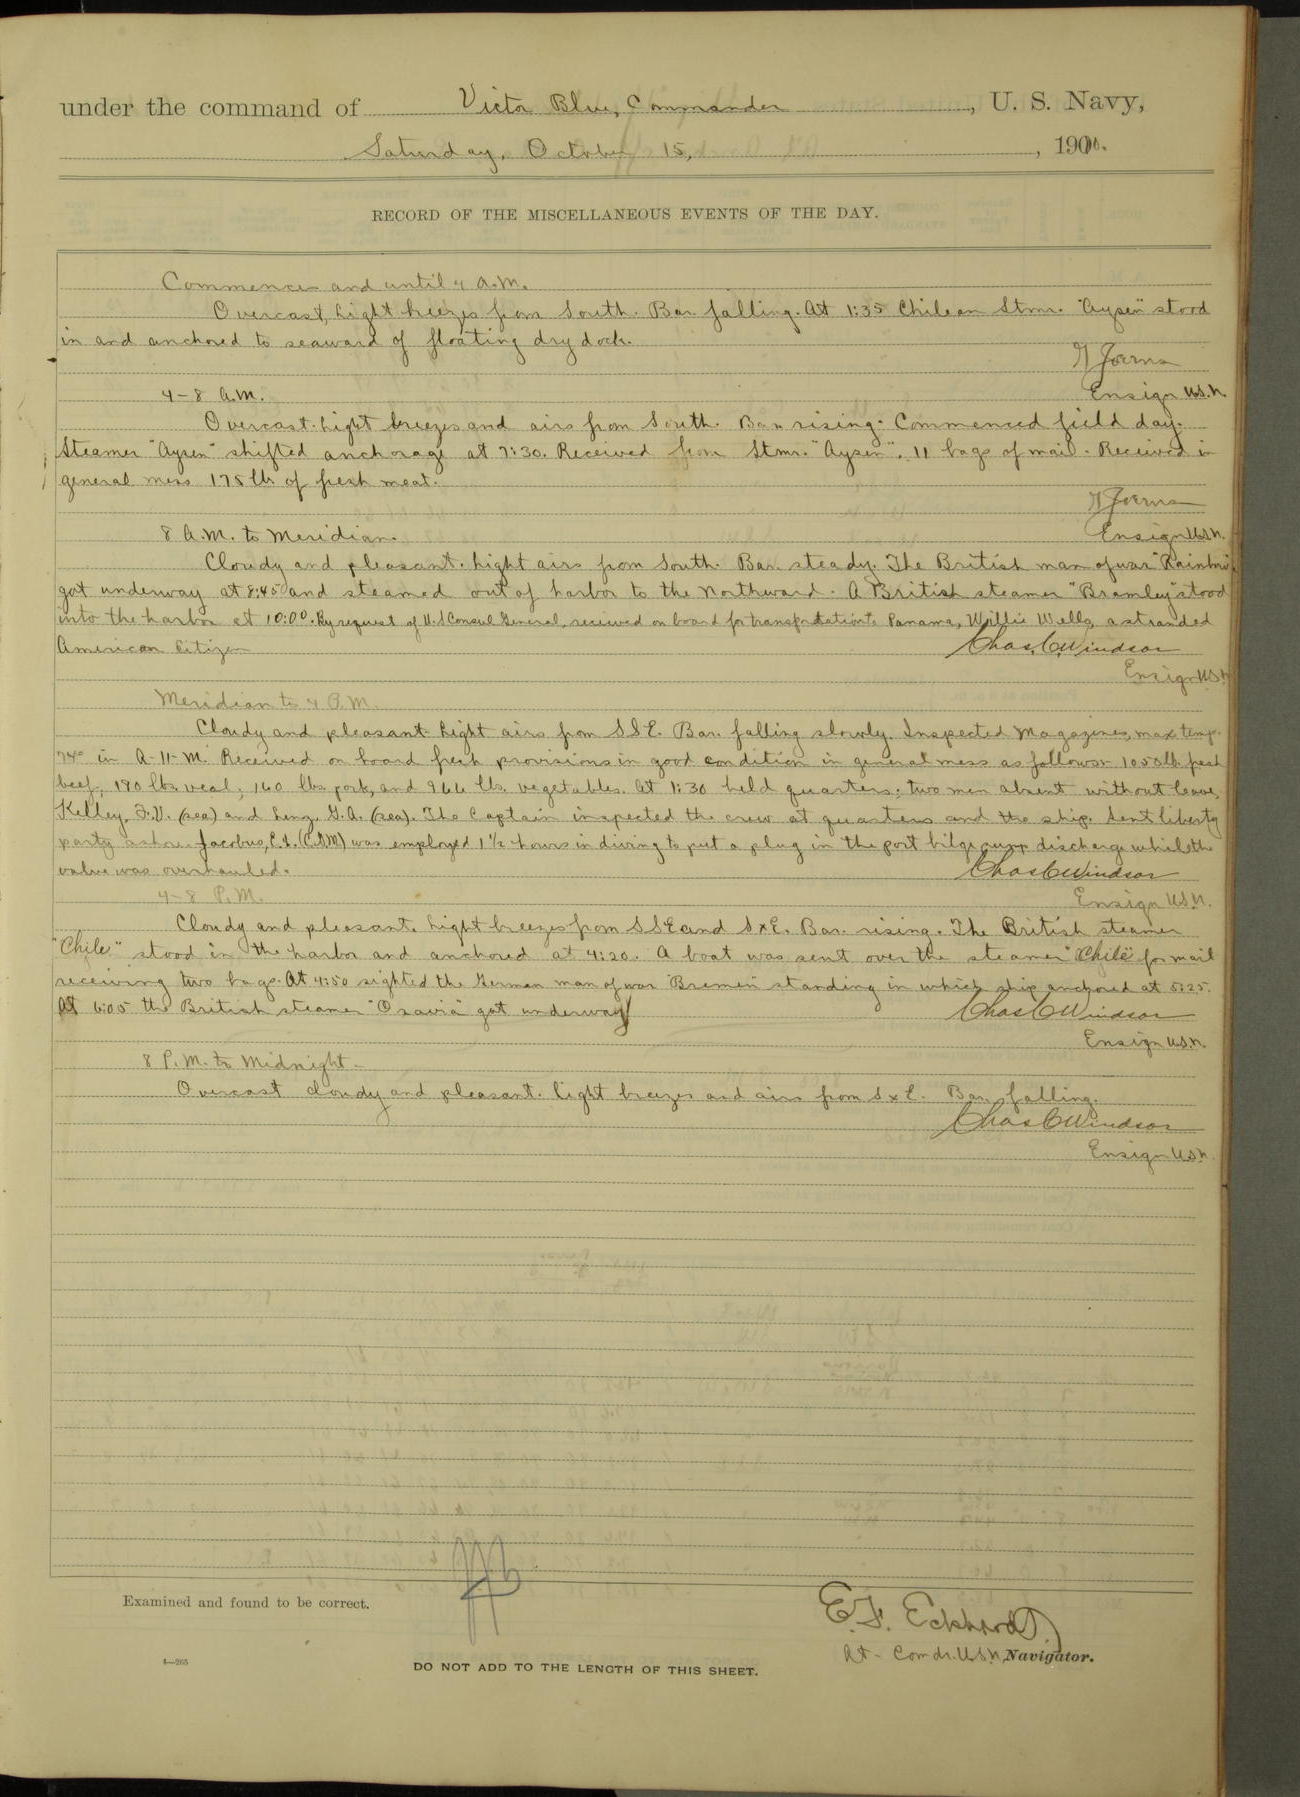 under the command of Victor Blue, Commander, U. S. Navy,
Saturday, October 15, 1910.
RECORD OF THE MISCELLANEOUS EVENTS OF THE DAY.
Commences and until 4 A.M.
Overcast, light breezes from South. Bar. falling. At 1:35 Chilean Stmr. "Aysen" stood
in and anchored to seaward of floating dry dock.
Ensign U.S.N.
4-8 A.M.
Overcast. Light breezes and airs from South. Bar. rising. Commenced field day.
Steamer "Aysen" shifted anchorage at 7:30. Received from Stmr. "Aysen", 11 bags of mail. Received in
general mess 175 lbs of fresh meat.
Ensign U.S.N.
8 A.M. to Meridian.
Cloudy and pleasant. Light airs from South. Bar. steady. The British man of war "Rainbow"
got underway at 8:45 and steamed out of harbor to the Northward. A British steamer "Bramley" stood
into the harbor at 10:00. By request of U.S. Consul General, received on board for transportation to Panama, Willie Wells, a stranded
American Citizen
Chas. C. Windsor
Ensign U.S.N.
Meridian to 4 P.M.
Cloudy and pleasant. Light airs from SSE. Bar. falling slowly. Inspected Magazines, max temp.
74° in A-11-M. Received on board fresh provisions in good condition in general mess as follows:- 1050 lb. fresh
beef, 190 lbs. veal, 160 lbs. pork, and 966 lbs. vegetables. At 1:30 held quarters; two men absent without leave,
Kelley, F.V. (sea) and Lenz, G.A. (sea). The Captain inspected the crew at quarters and the ship. Sent liberty
party ashore. Jacobus, C.S. (C.G.M) was employed 1½ hours in diving to put a plug in the port bilge pump discharge while the
valve was overhauled.
Chas C Windsor
Ensign U.S.N.
4-8 P.M.
Cloudy and pleasant. Light breezes from SSE and SxE. Bar. rising. The British steamer
"Chile" stood in the harbor and anchored at 4:20. A boat was sent over the steamer "Chile" for mail
receiving two bags. At 4:50 sighted the German man of war Bremen standing in which ship anchored at 5:25.
At 6:05 the British steamer "Oravia" got underway
Chas C Windsor
Ensign U.S.N.
8 P.M. to Midnight.
Overcast cloudy and pleasant. Light breezes and airs from SxE. Bar. falling.
Chas C Windsor
Ensign U.S.N.
Examined and found to be correct.
E.F. Eckhardt.
Lt-Comdr. U.S.N. Navigator.
4—265
DO NOT ADD TO THE LENGTH OF THIS SHEET.